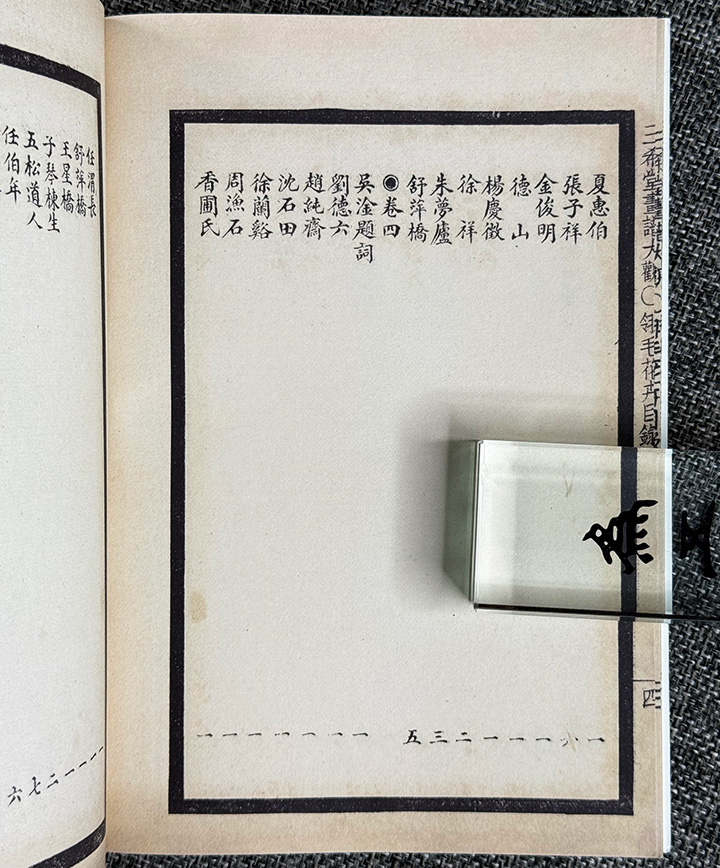 三希堂畫譜大觀〇翎毛花卉目錄
四
夏惠伯 一
張子祥
金俊明 一
德山 一
楊慶徵 一
徐祥 二
朱夢廬 三
舒萍橋 五
◉卷四
吳淦題詞 一
劉德六 一
趙純齋 一
沈石田 一
徐蘭谿 一
周漁石 一
香圃氏 一
任渭長 一
舒萍橋 一
王星橋 一
子琴棟生 二
五松道人 七
任伯年 六